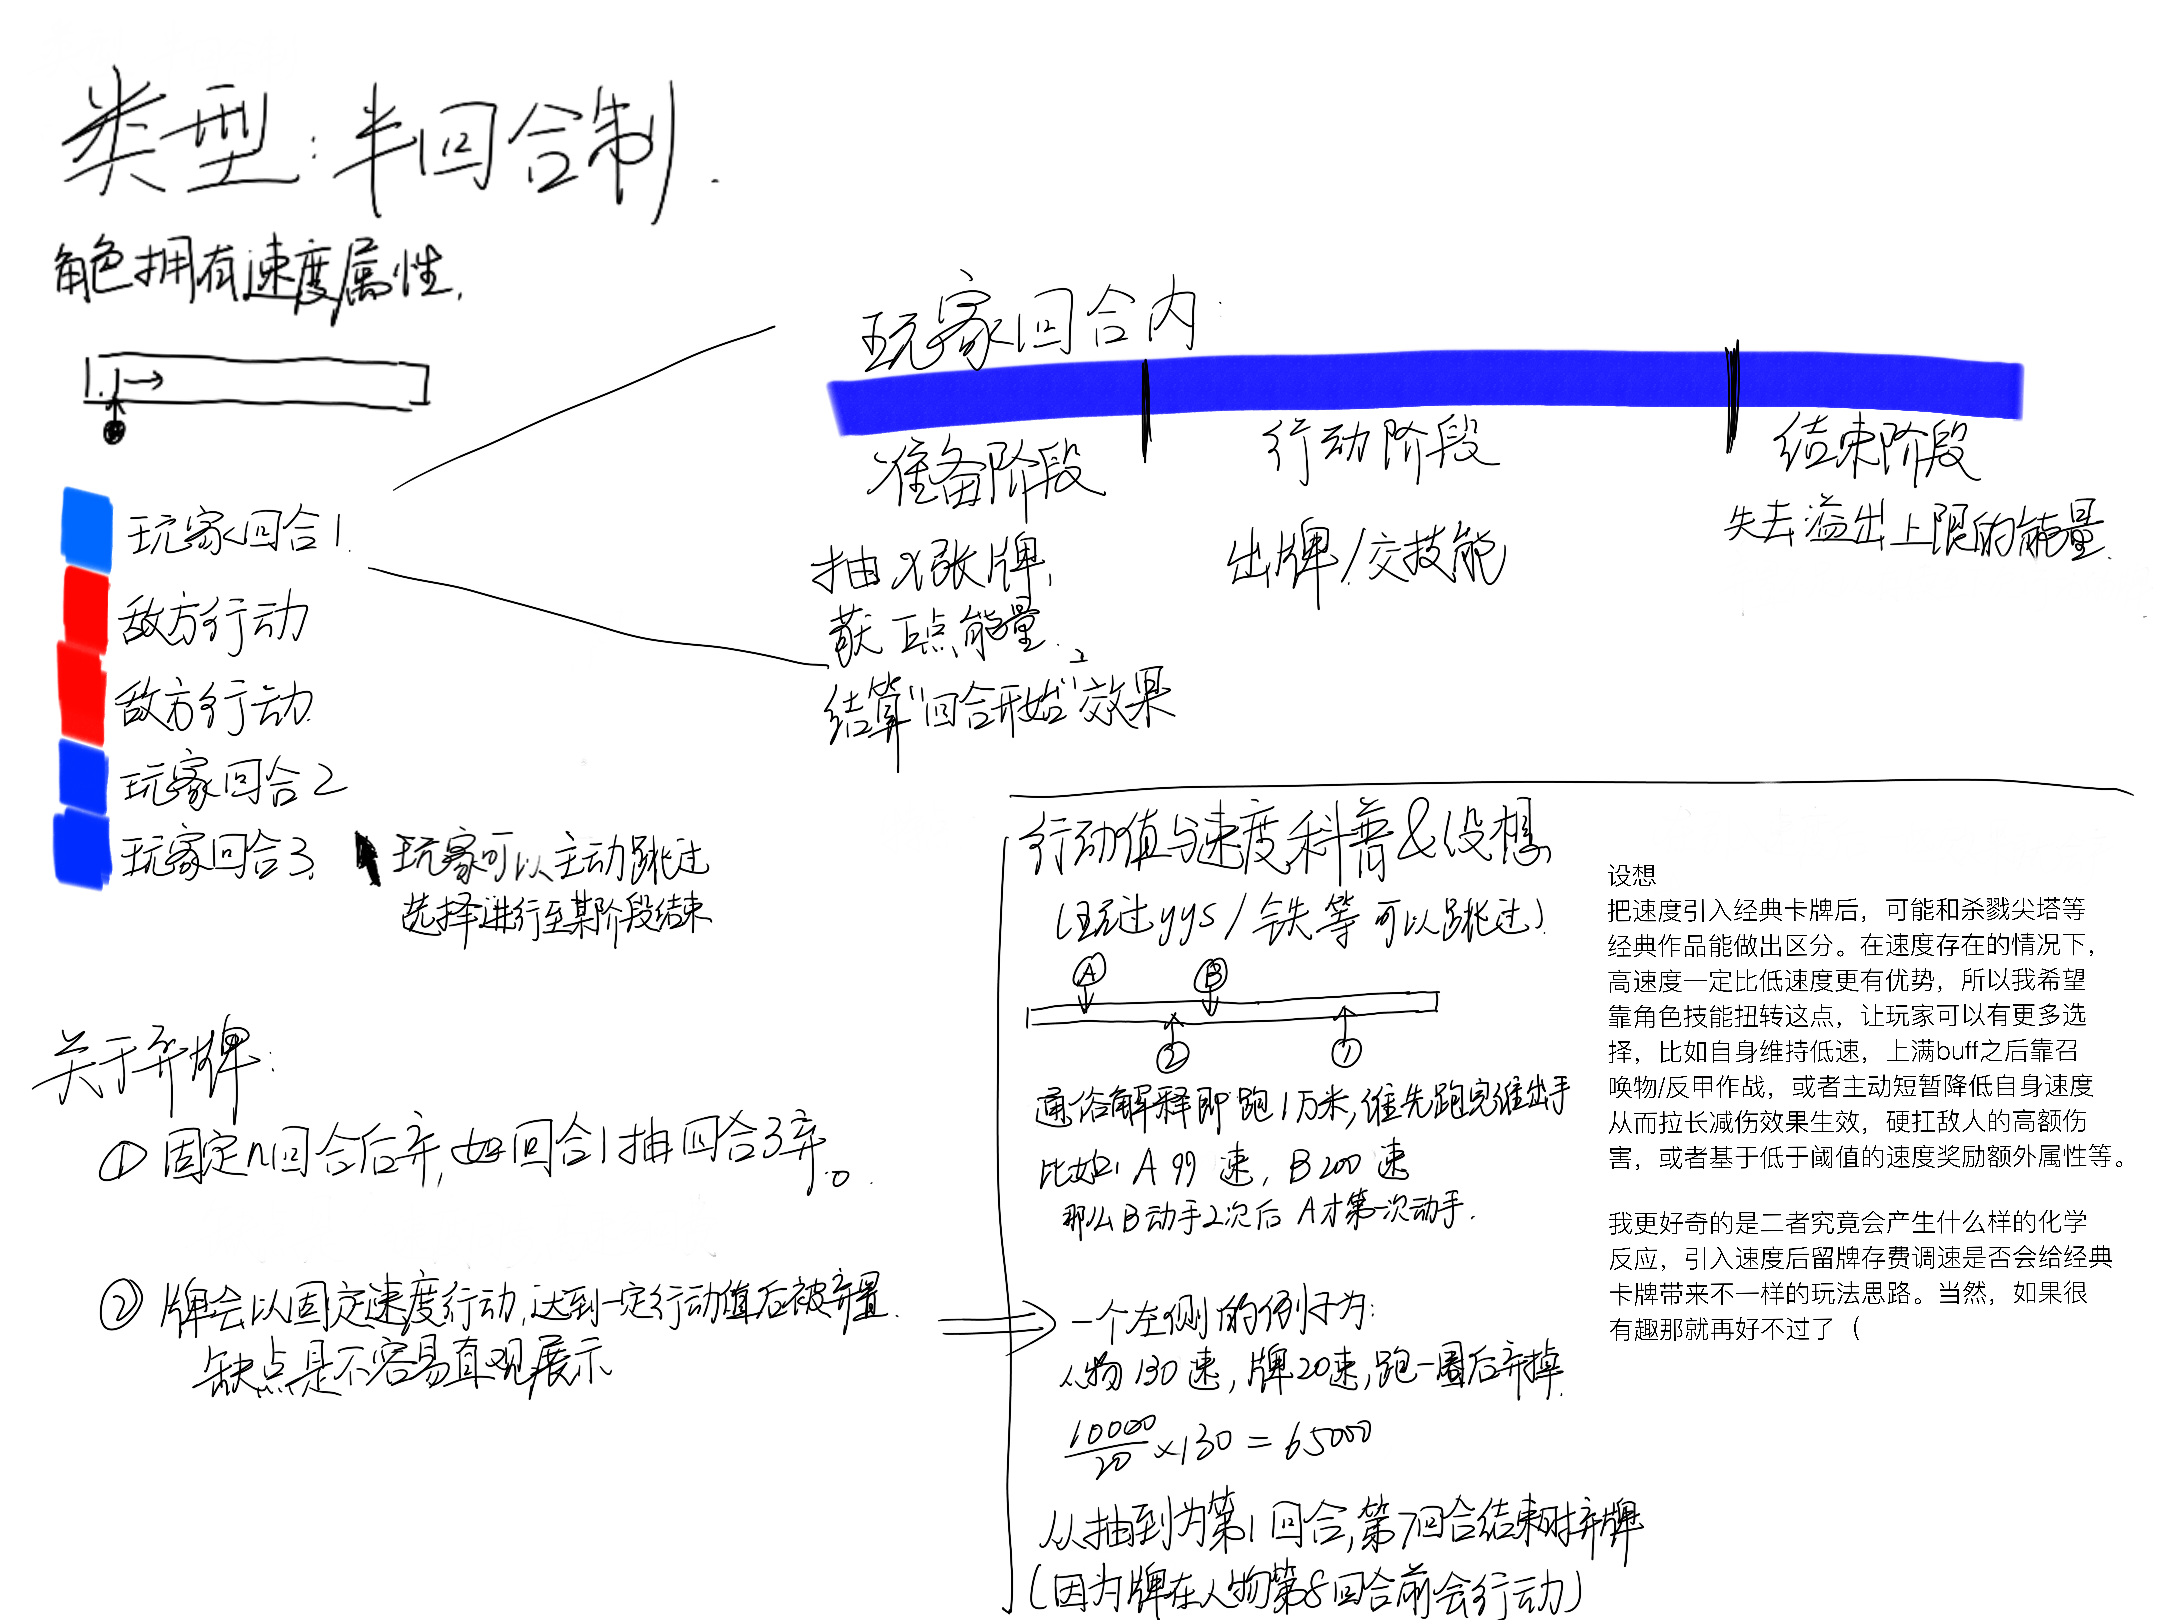 类型:半回合制.
角色拥有速度属性.
玩家回合1.
敌方行动
敌方行动.
玩家回合2
玩家回合3.
玩家可以主动跳过
选择进行至某阶段结束
玩家回合内:
准备阶段
抽x张牌,
获E点能量.
结算"回合开始"效果
行动阶段
出牌/交技能
结束阶段
失去溢出上限的能量.
关于弃牌:
① 固定n回合后弃,如回合1抽回合3弃。
② 牌会以固定速度行动,达到一定行动值后被弃置.
缺点是不容易直观展示
行动值与速度,科普&设想
(玩过yys/铁等可以跳过).
A
B
2
1
通俗解释即跑1万米,谁先跑完谁出手
比如 A 99 速, B 200 速
那么B动手2次后 A才第一次动手.
一个左侧的例子为:
人物130速,牌20速,跑一圈后弃掉
10000/20 ×130 = 65000
从抽到为第1回合,第7回合结束时弃牌
(因为牌在人物第8回合前会行动)
设想
把速度引入经典卡牌后，可能和杀戮尖塔等
经典作品能做出区分。在速度存在的情况下，
高速度一定比低速度更有优势，所以我希望
靠角色技能扭转这点，让玩家可以有更多选
择，比如自身维持低速，上满buff之后靠召
唤物/反甲作战，或者主动短暂降低自身速度
从而拉长减伤效果生效，硬扛敌人的高额伤
害，或者基于低于阈值的速度奖励额外属性等。
我更好奇的是二者究竟会产生什么样的化学
反应，引入速度后留牌存费调速是否会给经典
卡牌带来不一样的玩法思路。当然，如果很
有趣那就再好不过了（